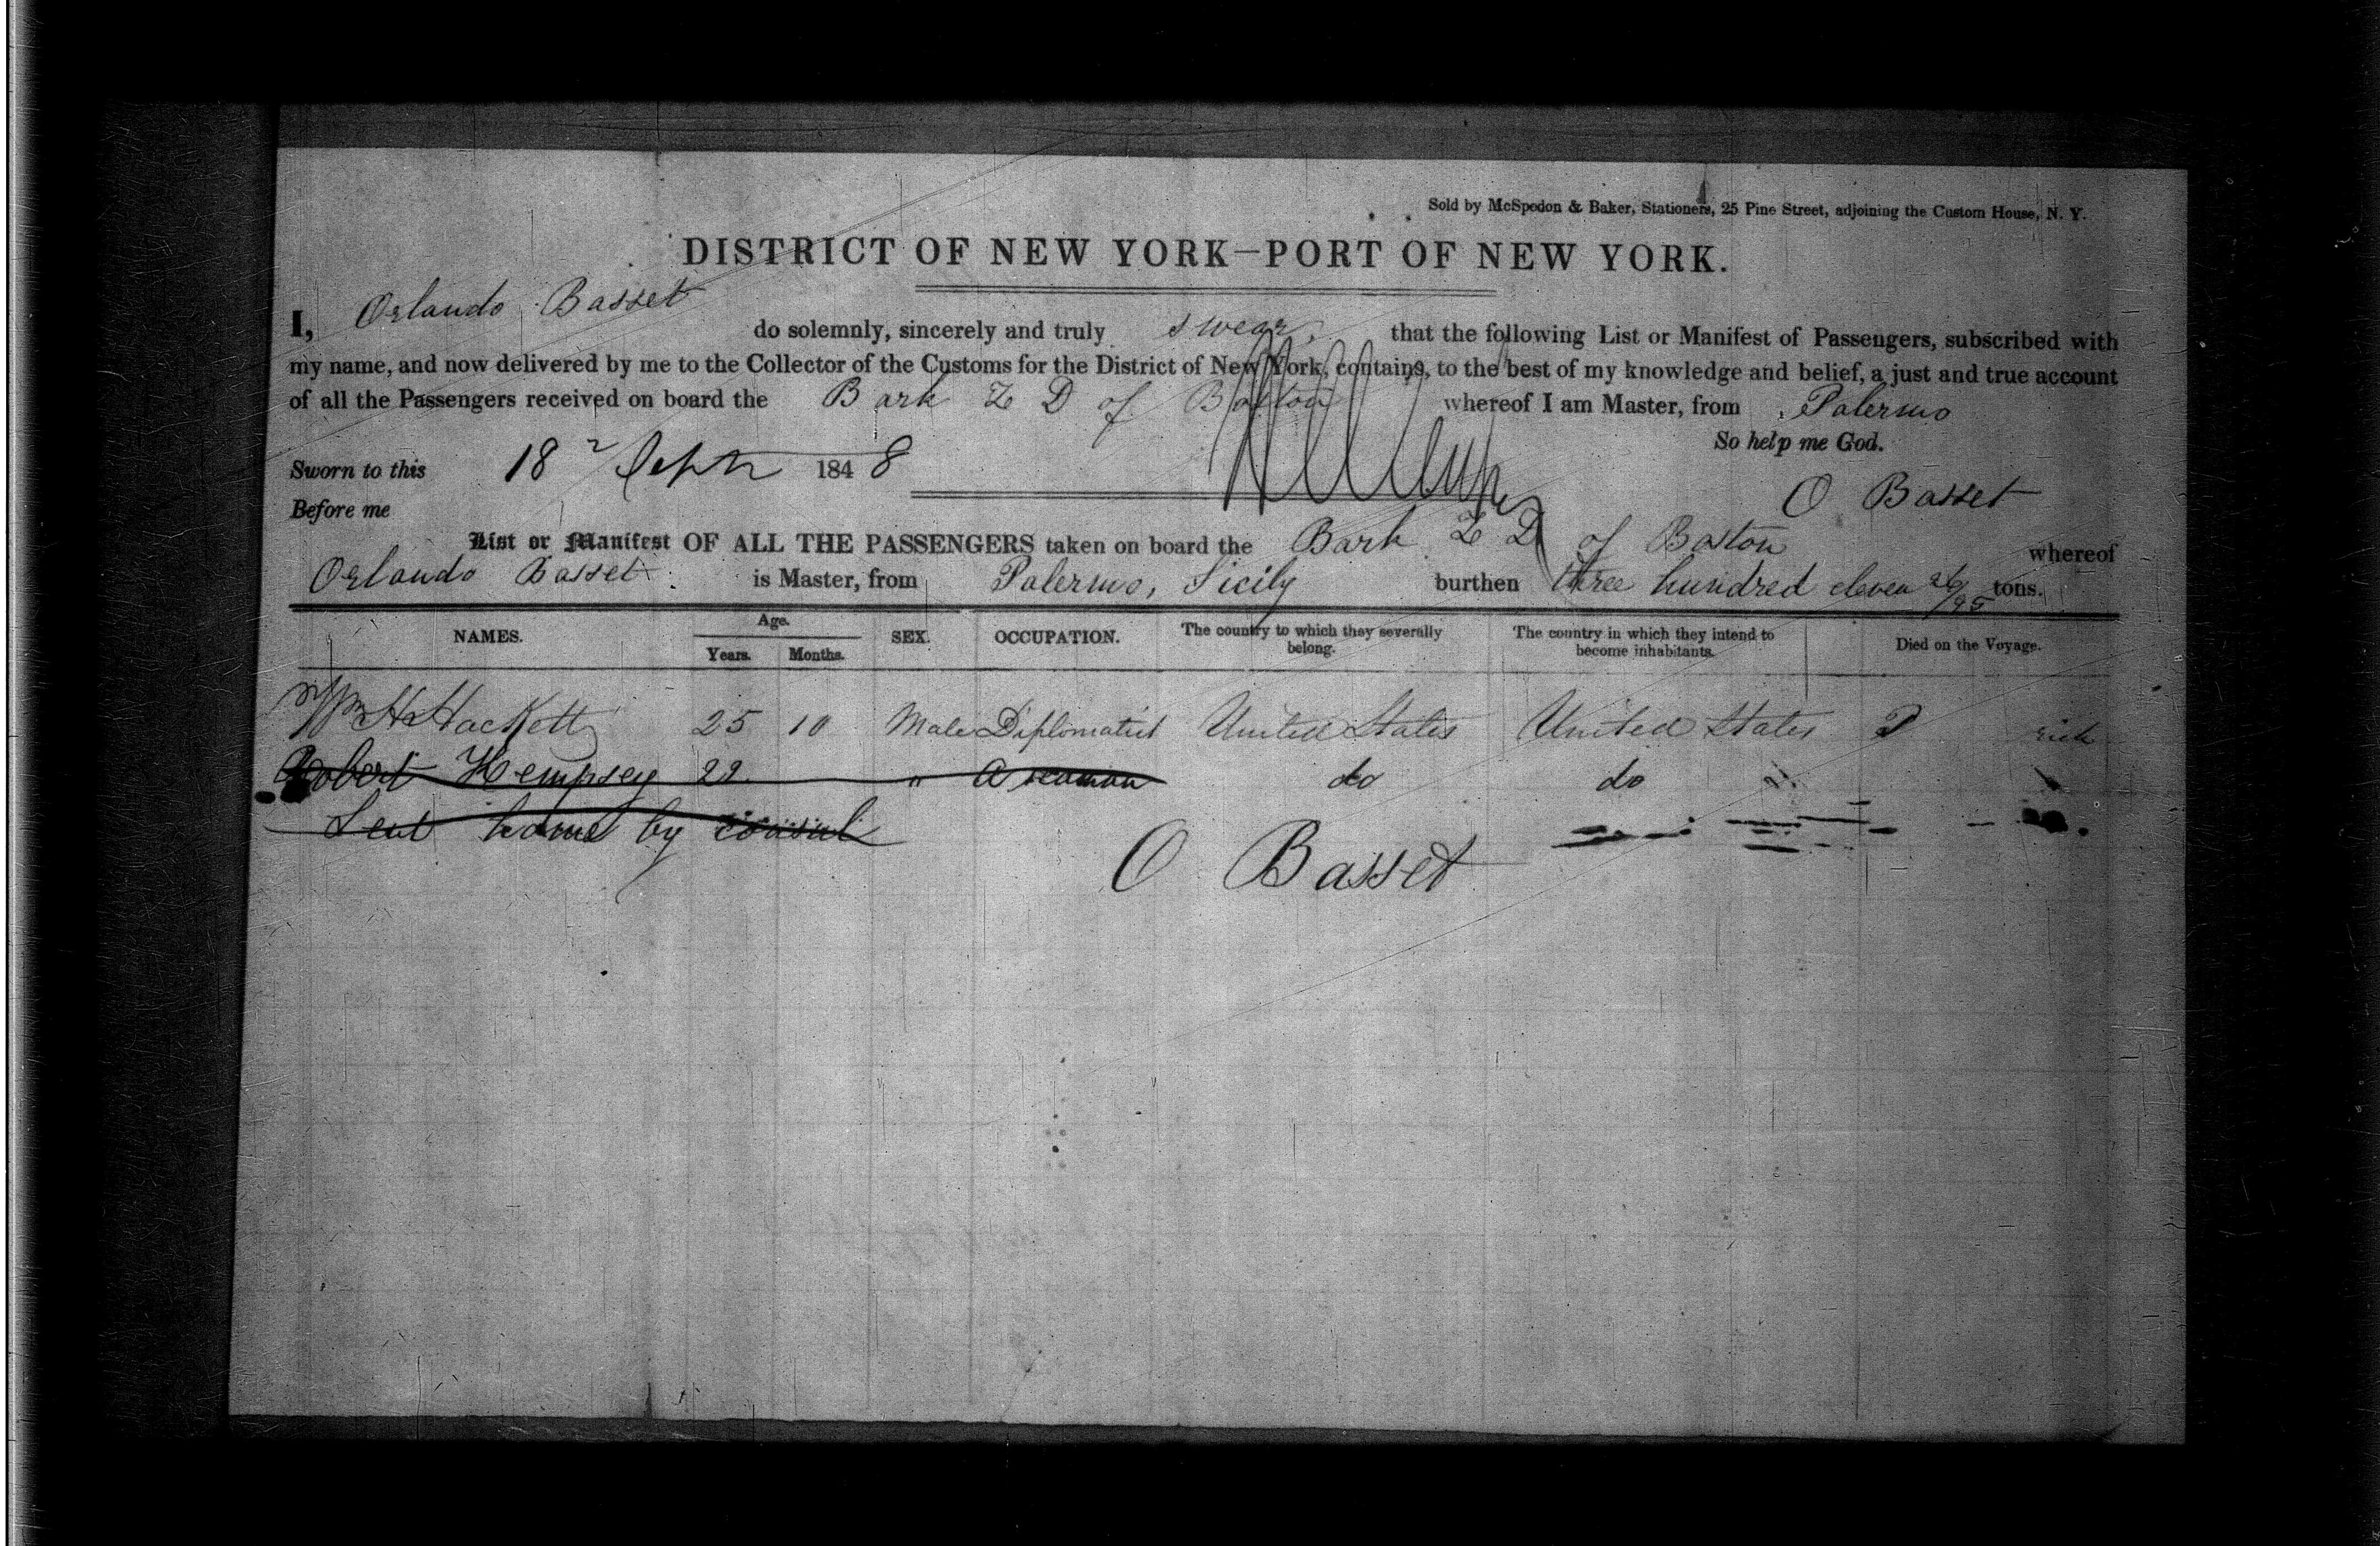 Sold by McSpedon & Baker, Stationers, 25 Pine Street, adjoining the Custom House, N. Y.
DISTRICT OF NEW YORK—PORT OF NEW YORK.
I, Orlando Basset do solemnly, sincerely and truly swear, that the following List or Manifest of Passengers, subscribed with
my name, and now delivered by me to the Collector of the Customs for the District of New York, contains, to the best of my knowledge and belief, a just and true account
of all the Passengers received on board the Bark Z D of Boston whereof I am Master, from Palermo
So help me God.
Sworn to this 18 Septr 1848
O Basset
Before me
List or Manifest OF ALL THE PASSENGERS taken on board the Bark Z D of Boston whereof
Orlando Basset is Master, from Palermo, Sicily burthen three hundred eleven 26/95 tons.
NAMES. Age. Years. Months. SEX. OCCUPATION. The country to which they severally belong. The country in which they intend to become inhabitants. Died on the Voyage.
Wm H Hackett 25 10 Male Diplomatist United States United States
Robert Hempsey 22 " A seaman do do
Sent home by consul
O Basset